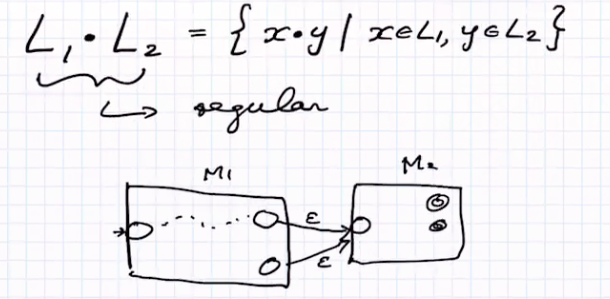 L₁ · L₂ = { x·y | x∈L₁, y∈L₂ }
↳ regular
M₁ M₂
ε
ε